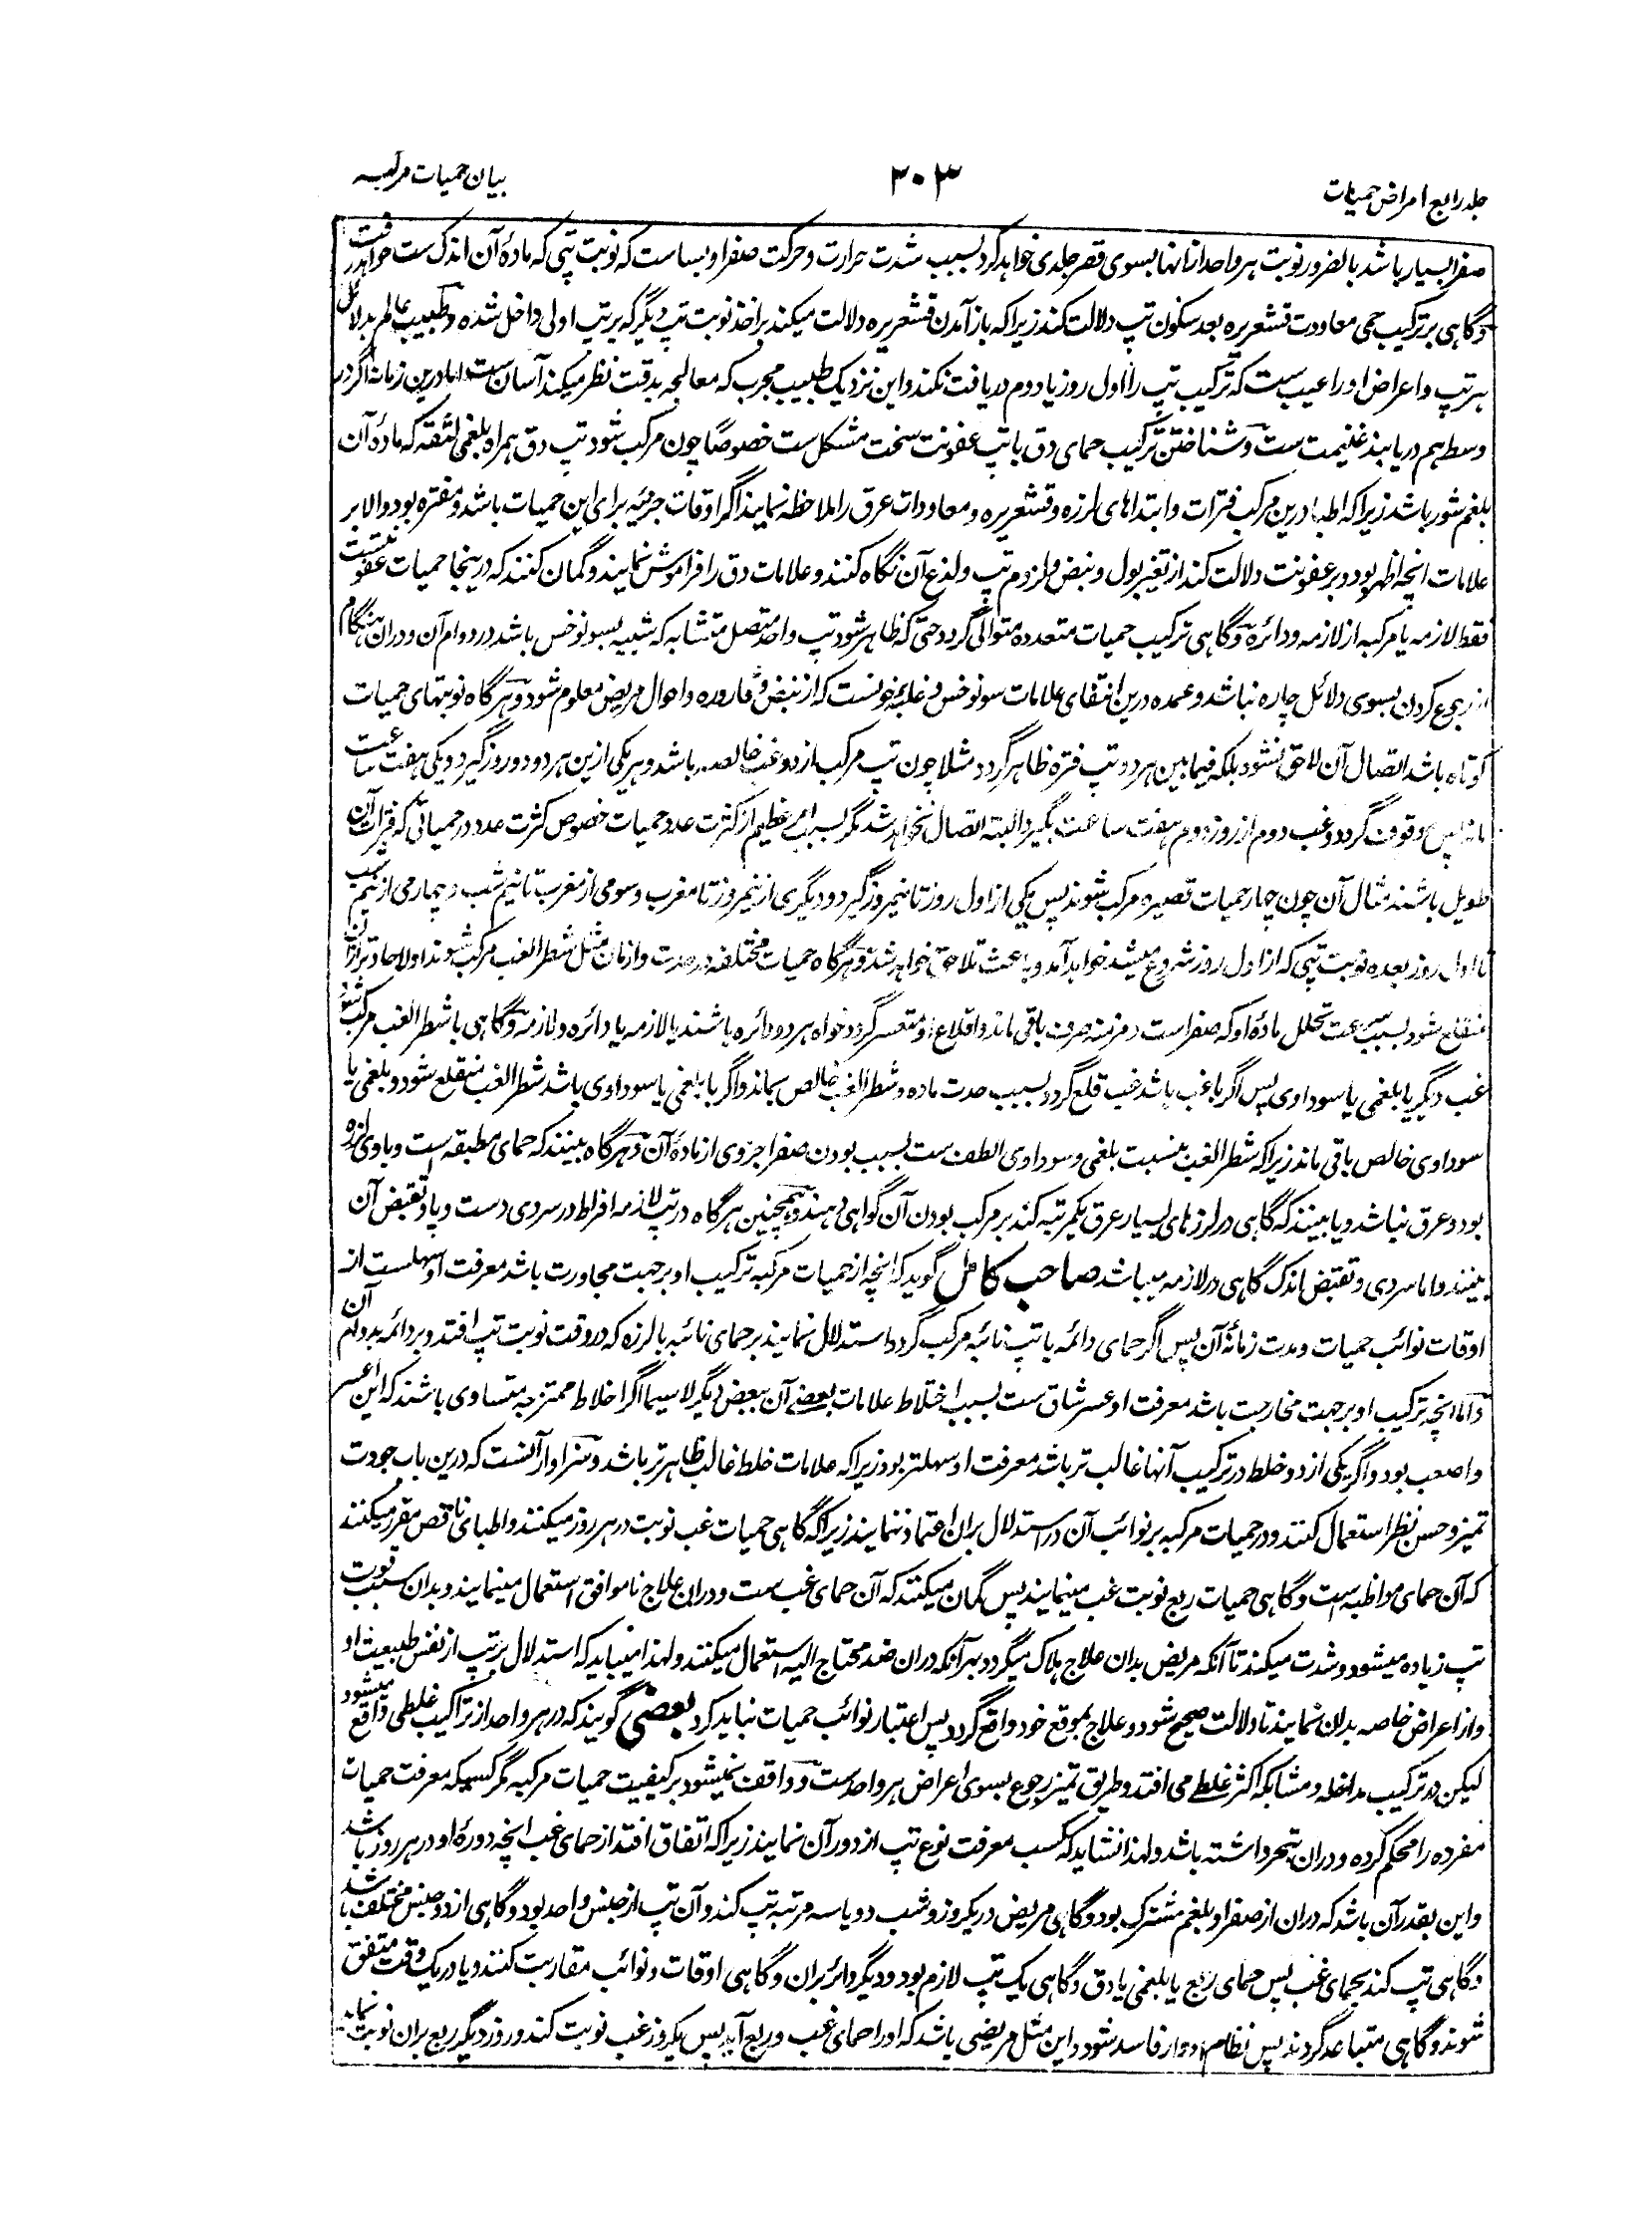 جلد رابع امراض حمیات
۳۰۳
بیان حمیات مرکبه
صفرا بسیار باشد بالضرور نوبت هر واحد از انها بسوی قصر جلدی خواهد کرد بسبب شدت حرارت و حرکت صفرا و بسا ست که نوبت تپی که مادهٔ آن اندک ست خواهد رفت
و گاهی بر ترکیب حمی معاودت قشعریره بعد سکون تپ دلالت کند زیرا که باز آمدن قشعریره دلالت میکند بر اخذ نوبت تپ دیگر که بر تپ اولی داخل شده و طبیب عالم بدلائل
هر تپ و اعراض او را عیب ست که ترکیب تپ را اول روز یا دوم دریافت نکند و این نزدیک طبیب مجرب که معالجه بدقت نظر میکند آسان ست اما درین زمانه اگر در
وسط هم دریابند غنیمت ست و شناختن ترکیب حمای دق با تپ عفونت سخت مشکل ست خصوصاً چون مرکب شود تپ دق همراه بلغمی لثقه که مادهٔ آن
بلغم شور باشد زیرا که اطبا درین مرکب فترات و ابتداهای لرزه و قشعریره و معاودات عرق را ملاحظه نمایند اگر اوقات جزئیه برای این حمیات باشد و مفتره بود والا بر
علامات انچه اظهر بود و بر عفونت دلالت کند از تغیر بول و نبض و لزوم تپ و لذع آن نگاه کنند و علامات دق را فراموش نمایند و گمان کنند که در ینجا حمیات عفونت ست
فقط لازمه یا مرکبه از لازمه و دائره و گاهی ترکیب حمیات متعدده متوالی گردد حتی که ظاهر شود تپ واحد متصل متشابه که شبیه بسونوخس باشد در دوام آن و دران هنگام
از رجوع کردن بسوی دلائل چاره نباشد و عمده درین انتفای علامات سونوخس و غلبهٔ خونست که از نبض و قاروره و احوال مریض معلوم شود و هرگاه نوبتهای حمیات
کوتاه باشد اتصال آن لاحق نشود بلکه فیما بین هر دو تپ فتره ظاهر گردد مثلا چون تپ مرکب از دو غب خالصه باشد و هر یکی ازین هر دو دو روز گیرد و یکی هفت ساعت
ماند پس موقوف گردد و غب دوم از روز دوم هفت ساعت بگیرد البته اتصال نخواهد شد مگر بسبب امر عظیم از کثرت عدد حمیات خصوص کثرت عدد در حمیاتی که فترات آن
طویل باشند مثال آن چون چهار حمیات قصیره مرکب شوند پس یکی از اول روز تا نیمروز گیرد و دیگری از نیمروز تا مغرب و سومی از مغرب تا نیم شب و چهارمی از نیم شب
تا اول روز بعده نوبت تپی که از اول روز شروع میشد خواهد آمد و باعث تلاحق خواهد شد و هرگاه حمیات مختلفه در حدت و ازمان مثل شطر الغب مرکب شوند اولا حادتر ازان
منقلع شود بسبب سرعت تحلل مادهٔ او که صفراست و مزمنه صرف باقی ماند و اقلاع او متعسر گردد خواه هر دو دائره باشند یا لازمه یا دائره و لازمه و گاهی با شطر الغب مرکب شود
غب دیگر یا بلغمی یا سوداوی پس اگر با غب باشد غب قلع گردد بسبب حدت ماده و شطر الغب خالص بماند و اگر با بلغمی یا سوداوی باشد شطر الغب منقلع شود و بلغمی یا
سوداوی خالص باقی ماند زیرا که شطر الغب بنسبت بلغمی و سوداوی الطف ست بسبب بودن صفرا جزوی از مادهٔ آن و هرگاه ببینند که حمای مطبقه است و باوی لرزه
بود و عرق نباشد و یا ببینند که گاهی در لرزهای بسیار عرق یکمرتبه کند بر مرکب بودن آن گواهی دهند و همچنین هرگاه در تپ لازمه افراط در سردی دست و پا و تقبض آن
ببینند و اما سردی و تقبض اندک گاهی در لازمه میباشد صاحب کامل گوید که انچه از حمیات مرکبه ترکیب او بر جهت مجاورت باشد معرفت او سهلست از
اوقات نوائب حمیات و مدت زمانهٔ آن پس اگر حمای دائمه با تپ نائبه مرکب گردد استدلال نمایند بر حمای نائبه بالرزه که در وقت نوبت تپ افتد و بر دائمه بدوام آن
و اما انچه ترکیب او بر جهت ممازجت باشد معرفت او عسر شاق ست بسبب اختلاط علامات بعضے آن ببعض دیگر لاسیما اگر اخلاط ممتزجه متساوی باشند که این اعسر
و اصعب بود و اگر یکی از دو خلط در ترکیب آنها غالب تر باشد معرفت او سهلتر بود زیرا که علامات خلط غالب ظاهرتر باشد و سزاوار آنست که درین باب جودت
تمیز و حسن نظر استعمال کنند و در حمیات مرکبه بر نوائب آن در استدلال بران اعتماد ننمایند زیرا که گاهی حمیات غب نوبت در هر روز میکنند و اطبای ناقص مقرر میکنند
که آن حمای مواظبه است و گاهی حمیات ربع نوبت غب مینمایند پس گمان میکنند که آن حمای غب ست و دران علاج ناموافق استعمال مینمایند و بدان سبب نوبت
تپ زیاده میشود و شدت میکند تا آنکه مریض بدان علاج هلاک میگردد بهر آنکه دران ضد محتاج الیه استعمال میکنند و لهذا میباید که استدلال بر تپ از نفس طبیعت او
و از اعراض خاصه بدان نمایند تا دلالت صحیح شود و علاج بموقع خود واقع گردد پس اعتبار نوائب حمیات نباید کرد بعضی گویند که در هر واحد از تراکیب غلطی واقع میشود
لیکن در ترکیب مداخله و مشابکه اکثر غلطے می افتد و طریق تمیز رجوع بسوی اعراض هر واحد ست و واقف نمیشود بر کیفیت حمیات مرکبه مگر کسیکه معرفت حمیات
مفرده را محکم کرده و دران تبحر داشته باشد و لهذا نشاید که کسب معرفت نوع تپ از دور آن نمایند زیرا که اتفاق افتد از حمای غب انچه دورهٔ او در هر روز باشد
و این بقدر آن باشد که دران از صفرا و بلغم مشترک بود و گاهی مریض در یکروز و شب دو یا سه مرتبه تپ کند و آن تپ از جنس واحد بود و گاهی از دو جنس مختلف باشد
و گاهی تپ کند بحمای غب پس حمای ربع یا بلغمی یا دق و گاهی یک تپ لازم بود و دیگر دائر بران و گاهی اوقات و نوائب مقاربت کنند و یا در یک وقت متفق
شوند و گاهی متباعد گردند پس نظام ادوار فاسد شود و این مثل مریضی باشد که او را حمای غب و ربع آید پس یکروز غب نوبت کند و روز دیگر ربع بران نوبت نماید